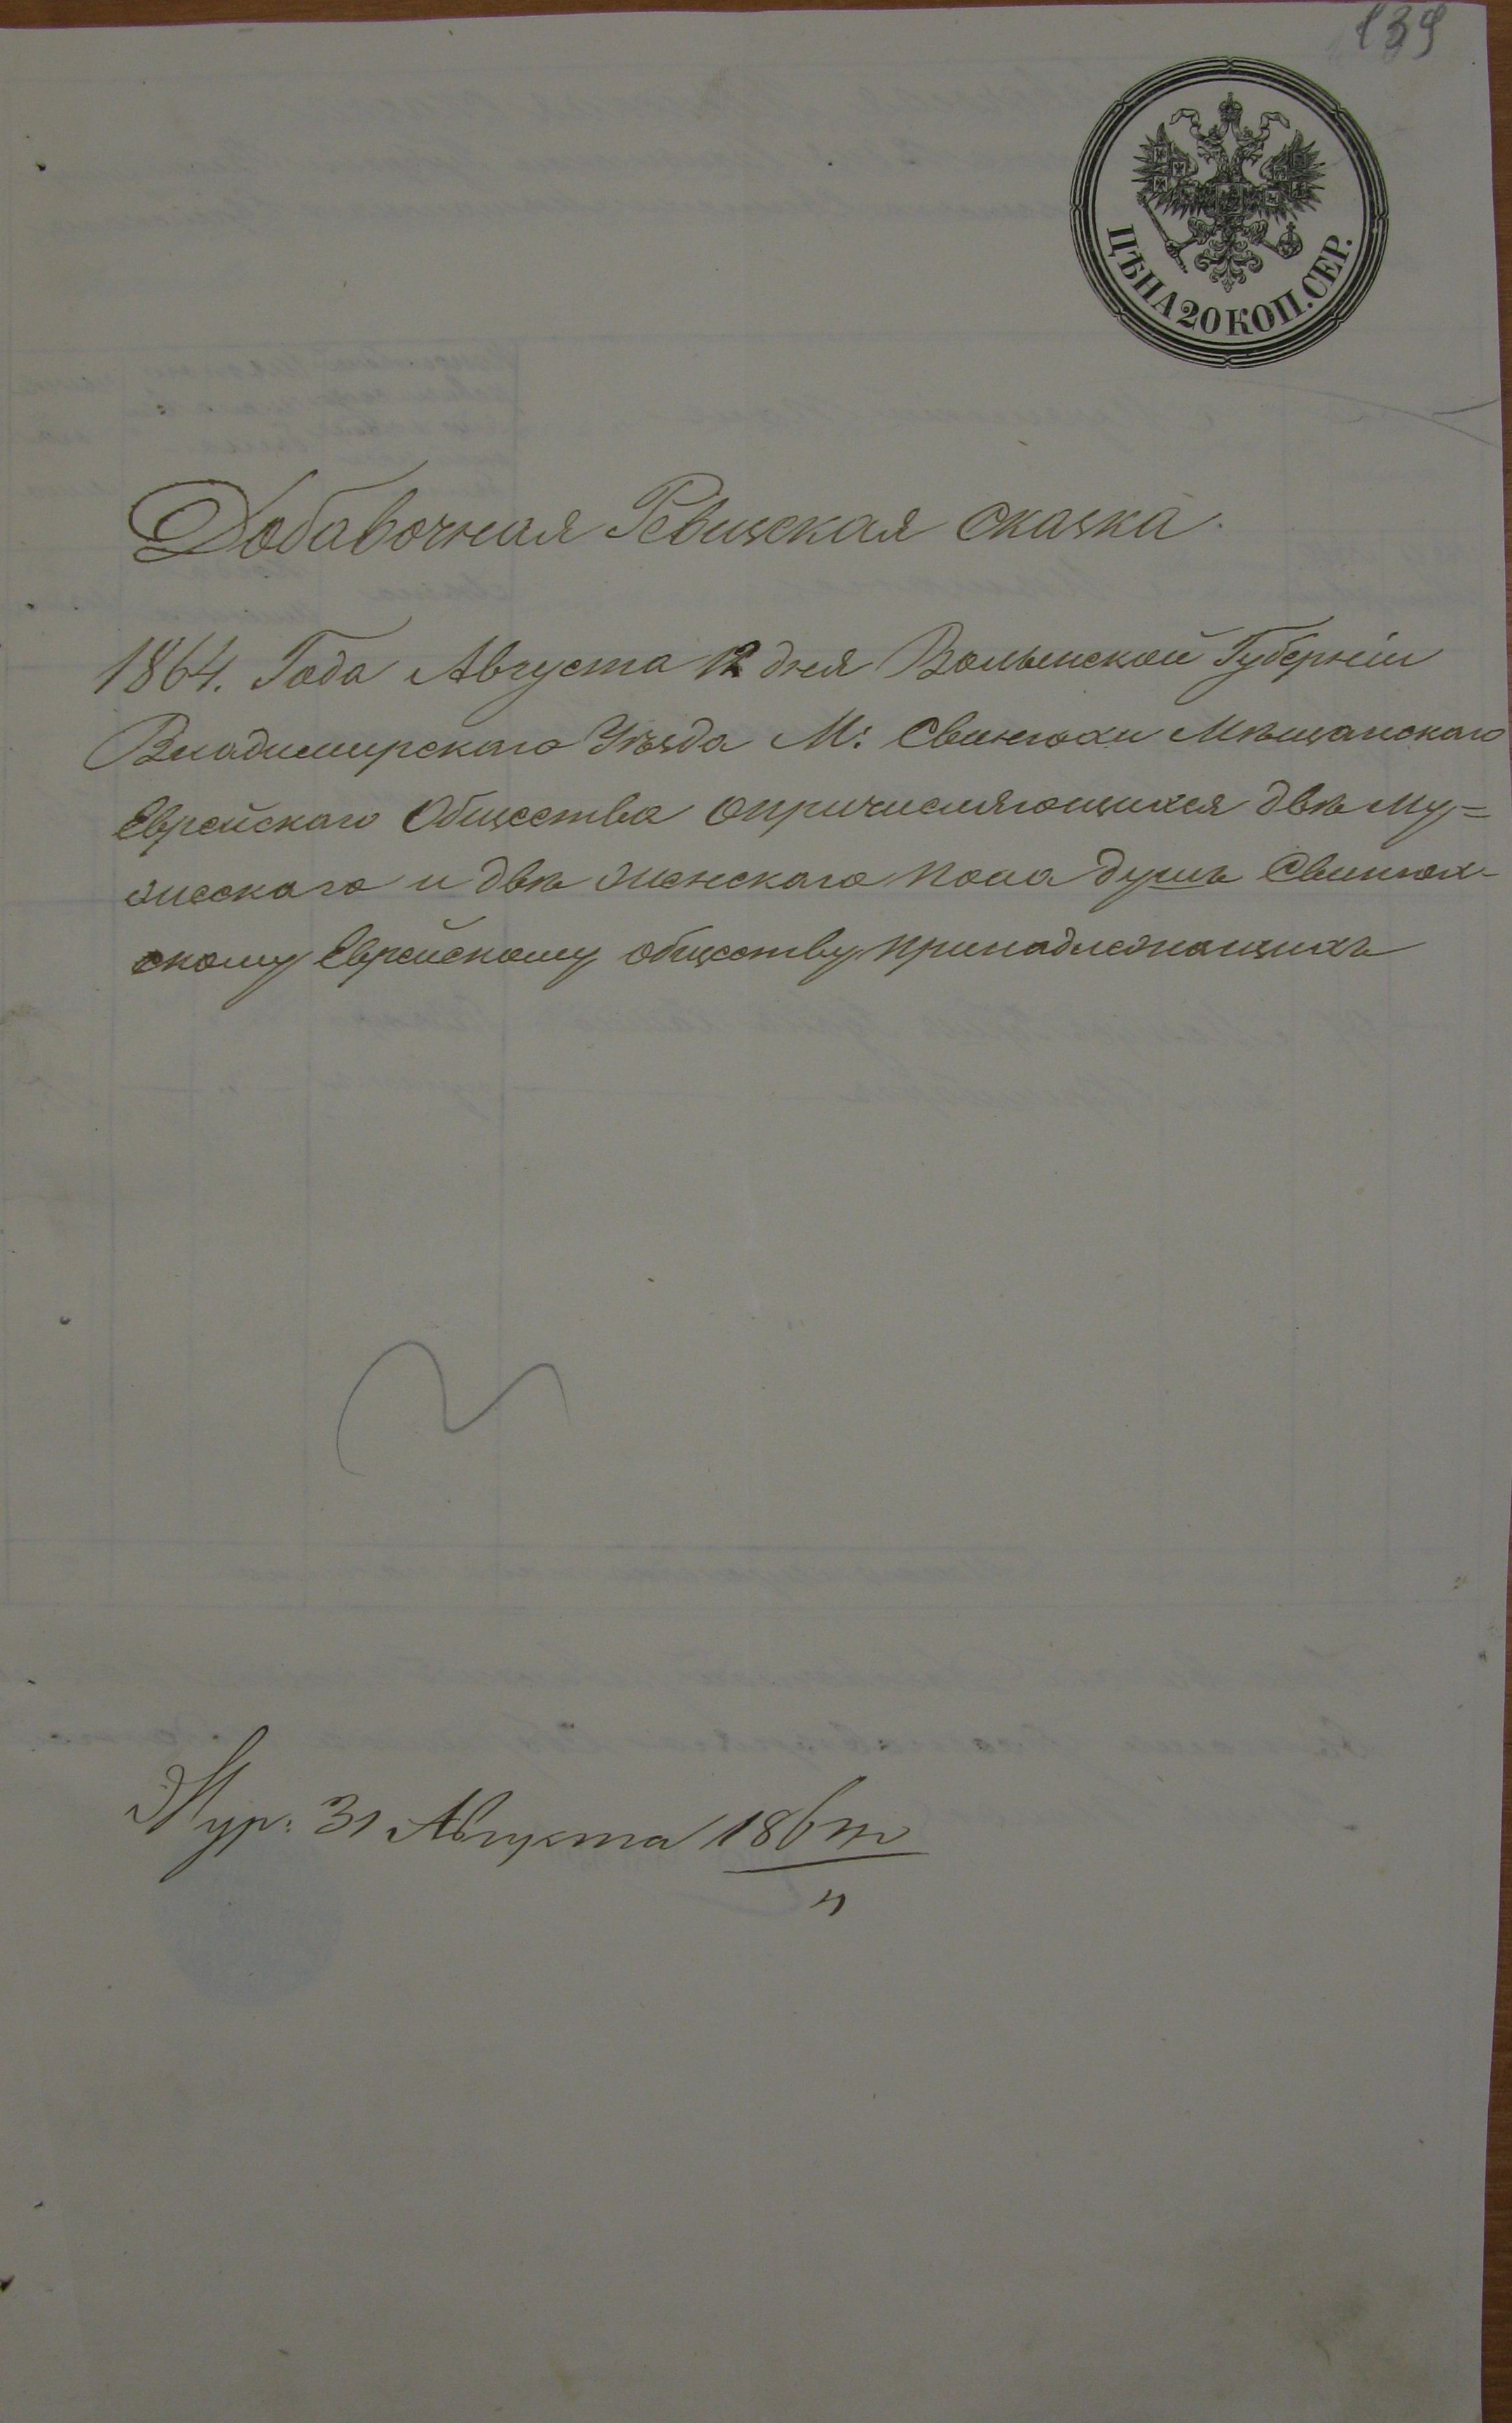 139
ЦѢНА 20 КОП. СЕР.
Добавочная Ревизская сказка.
1864. Года Августа 12 дня Волынской Губерніи
Владимирскаго Уѣзда М: Свинюхи Мѣщанскаго
Еврейскаго Общества опричисляющихся двѣ му=
жескаго и двѣ женскаго пола душъ Свинюх-
скому Еврейскому обществу принадлежащихъ
Жур: 31 Августа 186